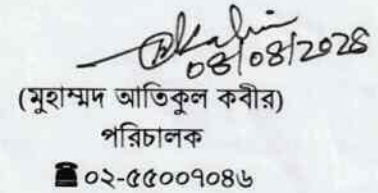 08/08/2028
(মুহাম্মদ আতিকুল কবীর)
পরিচালক
☎ ০২-৫৫০০৭০৪৬